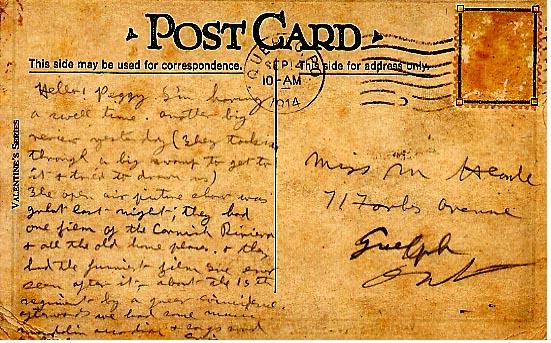 POST CARD
This side may be used for correspondence.
This side for address only.
QUE
SEP 14
10-AM
1914
VALENTINE'S SERIES
Hello Peggy I'm having
a swell time. another big
review yesterday (They took us
through a big swamp to get to
it & tried to drown us)
The open air picture show was
great last night; they had
one film of the Cornish Riviera
& all the old home places. & they
had the funniest film I've ever
seen after it, about the 15th
regiment by a queer coincidence.
afterwards we had some music
mandolin accordian & songs and
Miss M
71 Forbes Avenue
Guelph
Ont